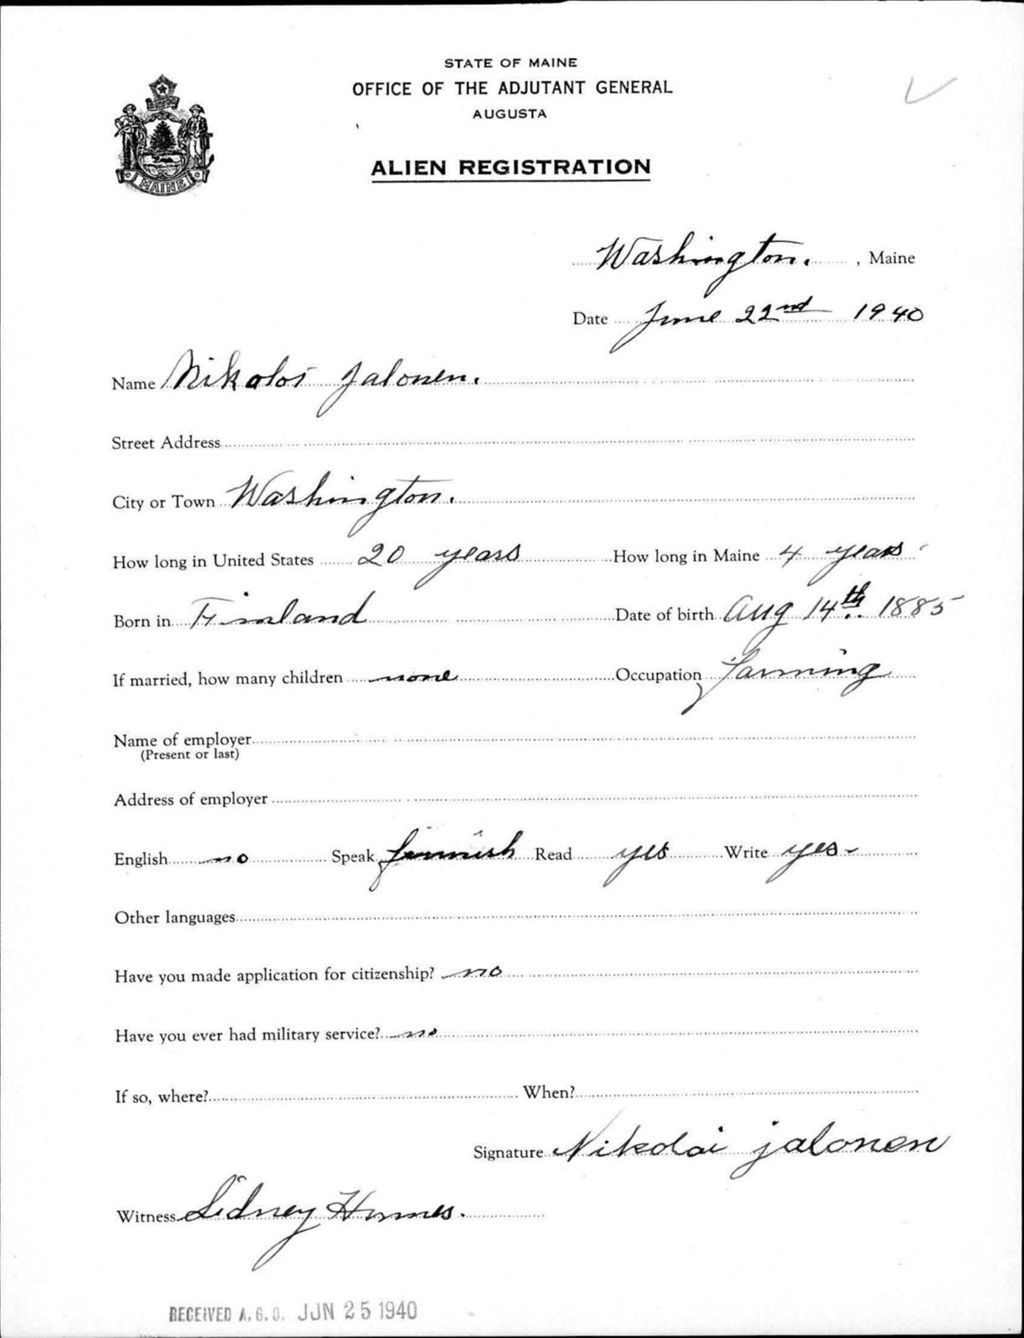 STATE OF MAINE
OFFICE OF THE ADJUTANT GENERAL
AUGUSTA
ALIEN REGISTRATION
MAINE
Washington. , Maine
Date June 22nd 1940
Name Nikoloi Jalonen.
Street Address
City or Town Washington.
How long in United States 20 years How long in Maine 4 years
Born in Finland Date of birth Aug 14th. 1885
If married, how many children none Occupation farming
Name of employer
(Present or last)
Address of employer
English no Speak finnish Read yes Write yes
Other languages
Have you made application for citizenship? no
Have you ever had military service? no
If so, where? When?
Signature Nikolai jalonen
Witness Sidney
RECEIVED A.G.O. JUN 25 1940